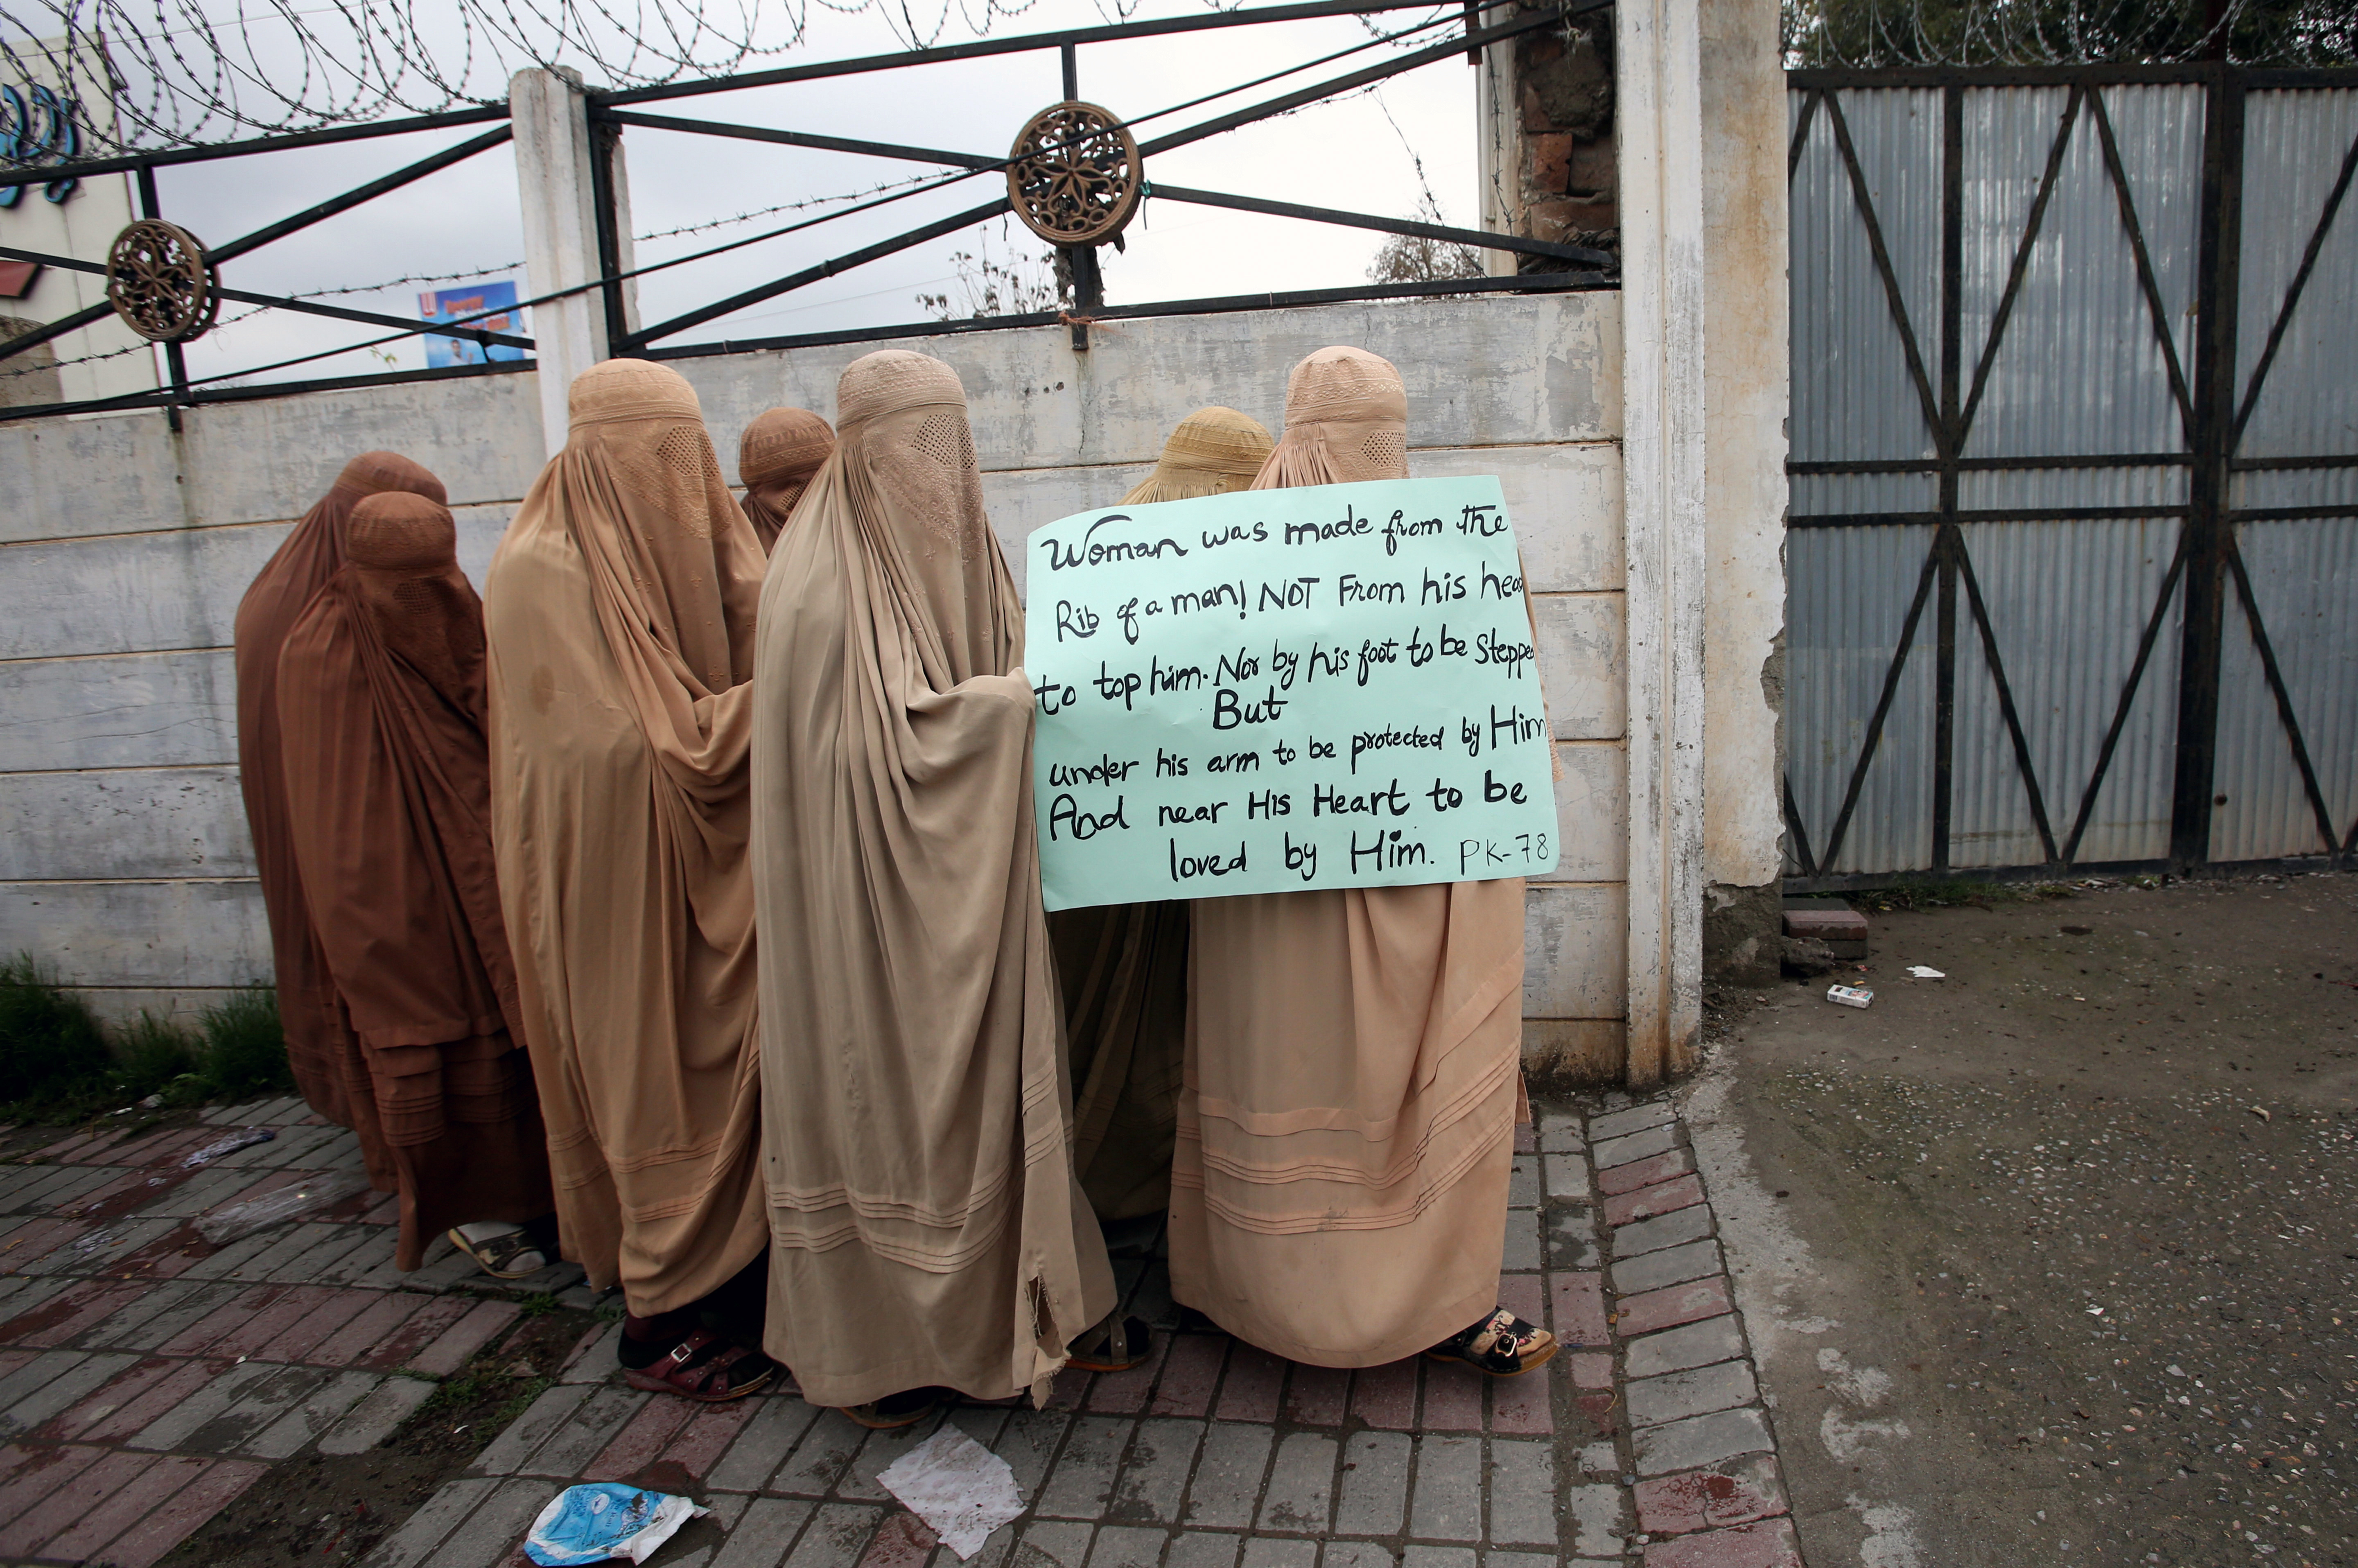 Woman was made from the
Rib of a man! NOT From his hea
to top him. Nor by his foot to be Steppe
But
under his arm to be protected by Him
And near His Heart to be
loved by Him. PK-78